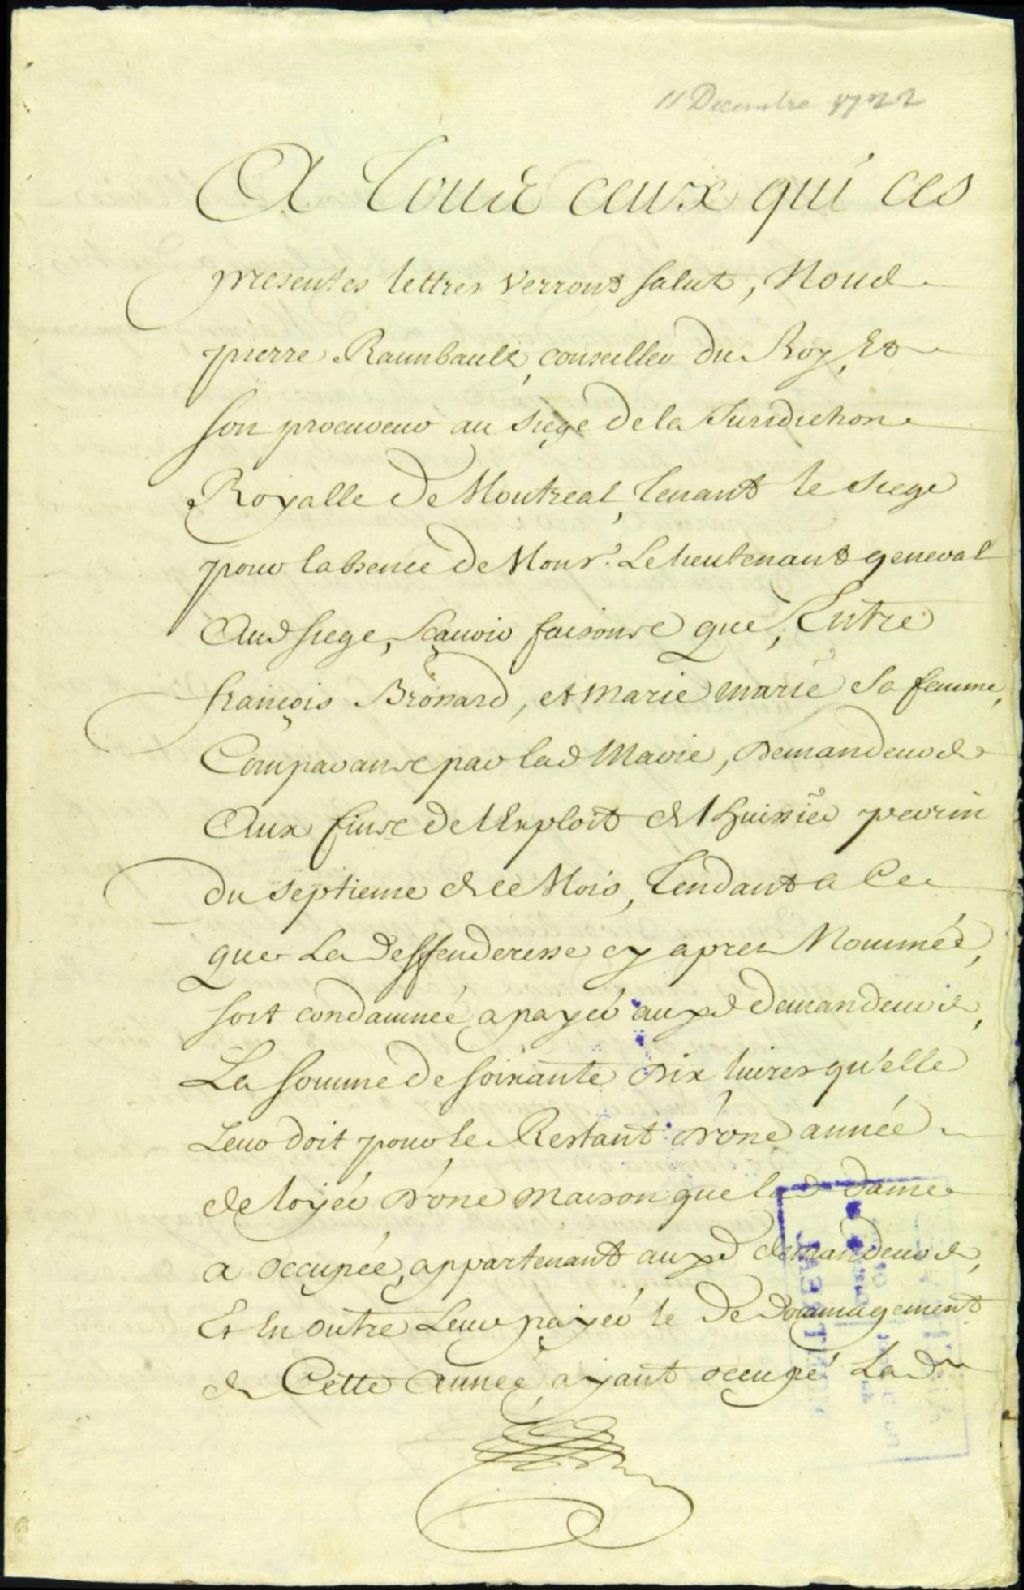 11 Decembre 1722
A Tous ceux qui ces
presentes lettres verront salut, Nous
pierre Raimbault, conseiller du Roy, Et
son procureur au siege de la Jurisdiction
Royalle de Montreal, tenant le siege
pour labsence de Monsr. Le lieutenant general
Aud siege, sçavoir faisons que, Entre
françois Brossard, et marie marie sa femme,
Comparans par lad Marie, Demandeurs
Aux fins de l'Exploit de l'huissier perrin
du septieme de ce Mois, Tendant a Ce
que La deffenderesse cy apres Nommée,
soit condamnée a payer auxd demandeurs,
La somme de soixante dix livres qu'elle
Leur doit pour le Restant d'one année
de loyer d'one maison que lad dame
a occupée, appartenant auxd demandeurs,
Et En outre Leur payer le Dedommagement
de Cette année, ayant occupé Lad